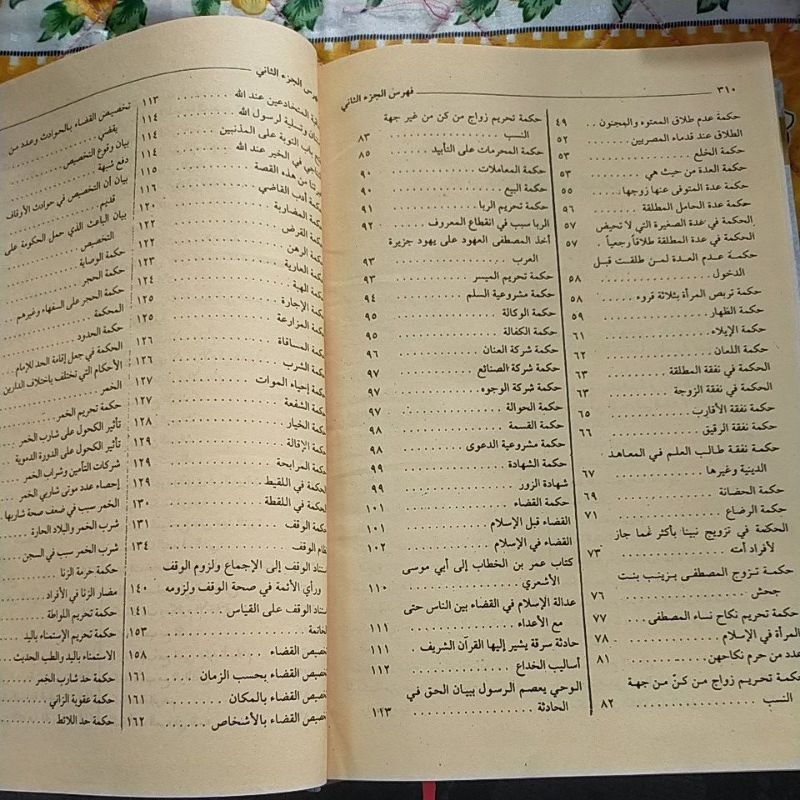 ٣١٠ فهرس الجزء الثاني
حكمة عدم طلاق المعتوه والمجنون . . ٤٩
الطلاق عند قدماء المصريين . . . . ٥٢
حكمة الخلع . . . . ٥٣
حكمة العدة من حيث هي . . . . ٥٣
حكمة عدة المتوفى عنها زوجها . . . . ٥٥
حكمة عدة الحامل المطلقة . . . . ٥٦
الحكمة في عدة الصغيرة التي لا تحيض ٥٧
الحكمة في عدة المطلقة طلاقاً رجعياً . ٥٧
حكمة عدم العدة لمن طلقت قبل
الدخول . . . . ٥٨
حكمة تربص المرأة بثلاثة قروء . . . . ٥٨
حكمة الظهار . . . . ٥٩
حكمة الإيلاء . . . . ٦١
حكمة اللعان . . . . ٦٢
الحكمة في نفقة المطلقة . . . . ٦٣
الحكمة في نفقة الزوجة . . . . ٦٣
حكمة نفقة الأقارب . . . . ٦٥
حكمة نفقة الرقيق . . . . ٦٦
حكمة نفقة طالب العلم في المعاهد
الدينية وغيرها . . . . ٦٧
حكمة الحضانة . . . . ٦٩
حكمة الرضاع . . . . ٧١
الحكمة في تزويج نبينا بأكثر عما جاز
لأفراد أمته . . . . ٧٣
حكمة تزوج المصطفى بزينب بنت
جحش . . . . ٧٦
حكمة تحريم نكاح نساء المصطفى . . . ٧٧
المرأة في الإسلام . . . . ٧٨
عدد من حرم نكاحهن . . . . ٨١
حكمة تحريم زواج من كنّ من جهة
النسب . . . . ٨٢
حكمة تحريم زواج من كن من غير جهة
النسب . . . . ٨٣
حكمة المحرمات على التأبيد . . . . ٨٥
حكمة المعاملات . . . . ٩٠
حكمة البيع . . . . ٩٠
حكمة تحريم الربا . . . . ٩١
الربا سبب في انقطاع المعروف . . . . ٩٢
أخذ المصطفى العهود على يهود جزيرة
العرب . . . . ٩٣
حكمة تحريم الميسر . . . . ٩٣
حكمة مشروعية السلم . . . . ٩٤
حكمة الوكالة . . . . ٩٥
حكمة الكفالة . . . . ٩٥
حكمة شركة العنان . . . . ٩٦
حكمة شركة الصنائع . . . . ٩٧
حكمة شركة الوجوه . . . . ٩٧
حكمة الحوالة . . . . ٩٧
حكمة القسمة . . . . ٩٨
حكمة مشروعية الدعوى . . . . ٩٨
حكمة الشهادة . . . . ٩٩
شهادة الزور . . . . ٩٩
حكمة القضاء . . . . ١٠١
القضاء قبل الإسلام . . . . ١٠١
القضاء في الإسلام . . . . ١٠٢
كتاب عمر بن الخطاب إلى أبي موسى
الأشعري . . . . ١١٠
عدالة الإسلام في القضاء بين الناس حتى
مع الأعداء . . . . ١١١
حادثة سرقة يشير إليها القرآن الشريف . ١١١
أساليب الخداع . . . . ١١٢
الوحي يعصم الرسول ببيان الحق في
الحادثة . . . . ١١٣
فهرس الجزء الثاني
المتخادعين عند الله . . . . ١١٣
وتسلية لرسول الله . . . . ١١٤
باب التوبة على المذنبين ١١٤
في الخير عند الله . . . . ١١٤
من هذه القصة . . . . ١١٥
أدب القاضي . . . . ١١٦
المضاربة . . . . ١٢٠
القرض . . . . ١٢٢
الرهن . . . . ١٢٢
العارية . . . . ١٢٣
الهبة . . . . ١٢٤
الإجارة . . . . ١٢٥
المزارعة . . . . ١٢٥
المساقاة
الشرب . . . . ١٢٦
إحياء الموات . . . . ١٢٦
الشفعة . . . . ١٢٧
الخيار . . . . ١٢٧
الإقالة . . . . ١٢٨
المرابحة . . . . ١٢٩
في اللقيط . . . . ١٢٩
في اللقطة . . . . ١٢٩
الوقف . . . . ١٣٠
الوقف . . . . ١٣١
الوقف إلى الإجماع ولزوم الوقف ١٣٤
ورأي الأئمة في صحة الوقف ولزومه ١٤٠
الوقف على القياس . . . . ١٤١
١٥٣
القضاء . . . . ١٥٨
القضاء بحسب الزمان . . . . ١٦١
القضاء بالمكان . . . . ١٦١
القضاء بالأشخاص . . . . ١٦٢
تخصيص القضاء بالحوادث وعدد من
يقضي
بيان وقوع التخصيص
دفع شبهة
بيان أن التخصيص في حوادث الأوقاف
قديم
بيان الباعث الذي حمل الحكومة على
التخصيص
حكمة الوصاية
حكمة الحجر
حكمة الحجر على السفهاء وغيرهم
المحكمة
حكمة الحدود
الحكمة في جعل إقامة الحد للإمام
الأحكام التي تختلف باختلاف الدارين
الخمر
حكمة تحريم الخمر
تأثير الكحول على شارب الخمر
تأثير الكحول على الدورة الدموية
شركات التأمين وشراب الخمر
إحصاء عدد موتى شاربي الخمر
الخمر سبب في ضعف صحة شاربها
شرب الخمر والبلاد الحارة
شرب الخمر سبب في السجن
حكمة حرمة الزنا
مضار الزنا في الأفراد
حكمة تحريم اللواطة
حكمة تحريم الإستمناء باليد
الاستمناء باليد والطب الحديث
حكمة حد شارب الخمر
حكمة عقوبة الزاني
حكمة حد اللائط